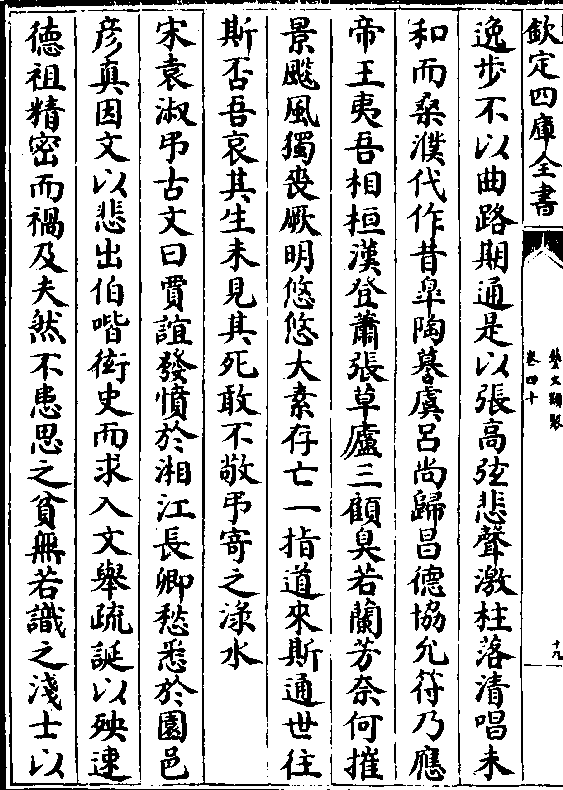 欽定四庫全書
藝文類聚
卷四十
十九
逸步不以曲路期通是以張高弦悲聲激柱落清唱未
和而桑濮代作昔皋陶暮虞呂尚歸昌德協允符乃應
帝王夷吾相桓漢登蕭張草廬三顧臭若蘭芳奈何摧
景飈風獨喪厥明悠悠大素存亡一指道來斯通世往
斯否吾哀其生未見其死敢不敬弔寄之淥水
宋袁淑弔古文曰賈誼發憤於湘江長卿愁悉於園邑
彥真因文以悲出伯喈衒史而求入文舉疏誕以殃速
德祖精密而禍及夫然不患思之貧無若識之淺士以